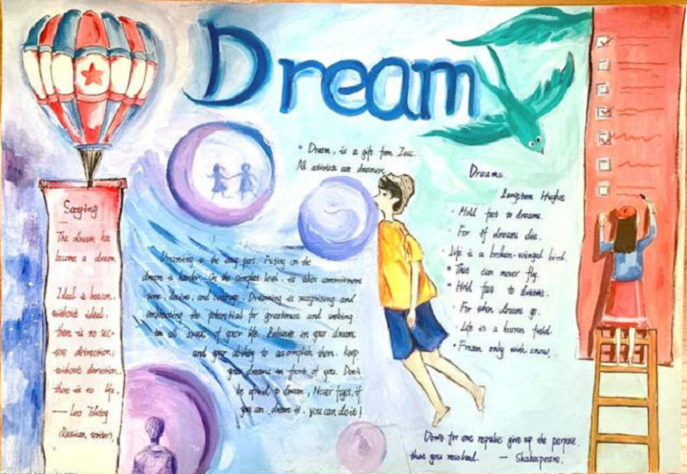 Dream
Saying
The dream has
become a dream
Ideal is beacon.
without ideal,
there is no sec-
ure direction;
without direction
there is no life.
— Leo Tolstoy
(Russian writer).
• Dream, is a gift from
All activists are dreamers.
Dreaming is the easy part. Acting on the
dream is harder. On the simplest level, it takes commitment
time, desire, and courage. Dreaming is recognizing and
embracing the potential for greatness and
in all areas of your life. Believe in your dreams
and your ability to accomplish them. keep
your dreams in front of you. Don't
be afraid to dream, Never forget, if
you can dream it, you can do it!
Dreams
Langston Hughes
• Hold fast to dreams.
• For if dreams die.
• Life is a broken-winged bird.
• That can never fly.
• Hold fast to dreams.
• For when dreams go.
• Life is a barren field.
• Frozen only with snow.
Don't for one repulse give up the purpose
that you resolved. — Shakespeare.